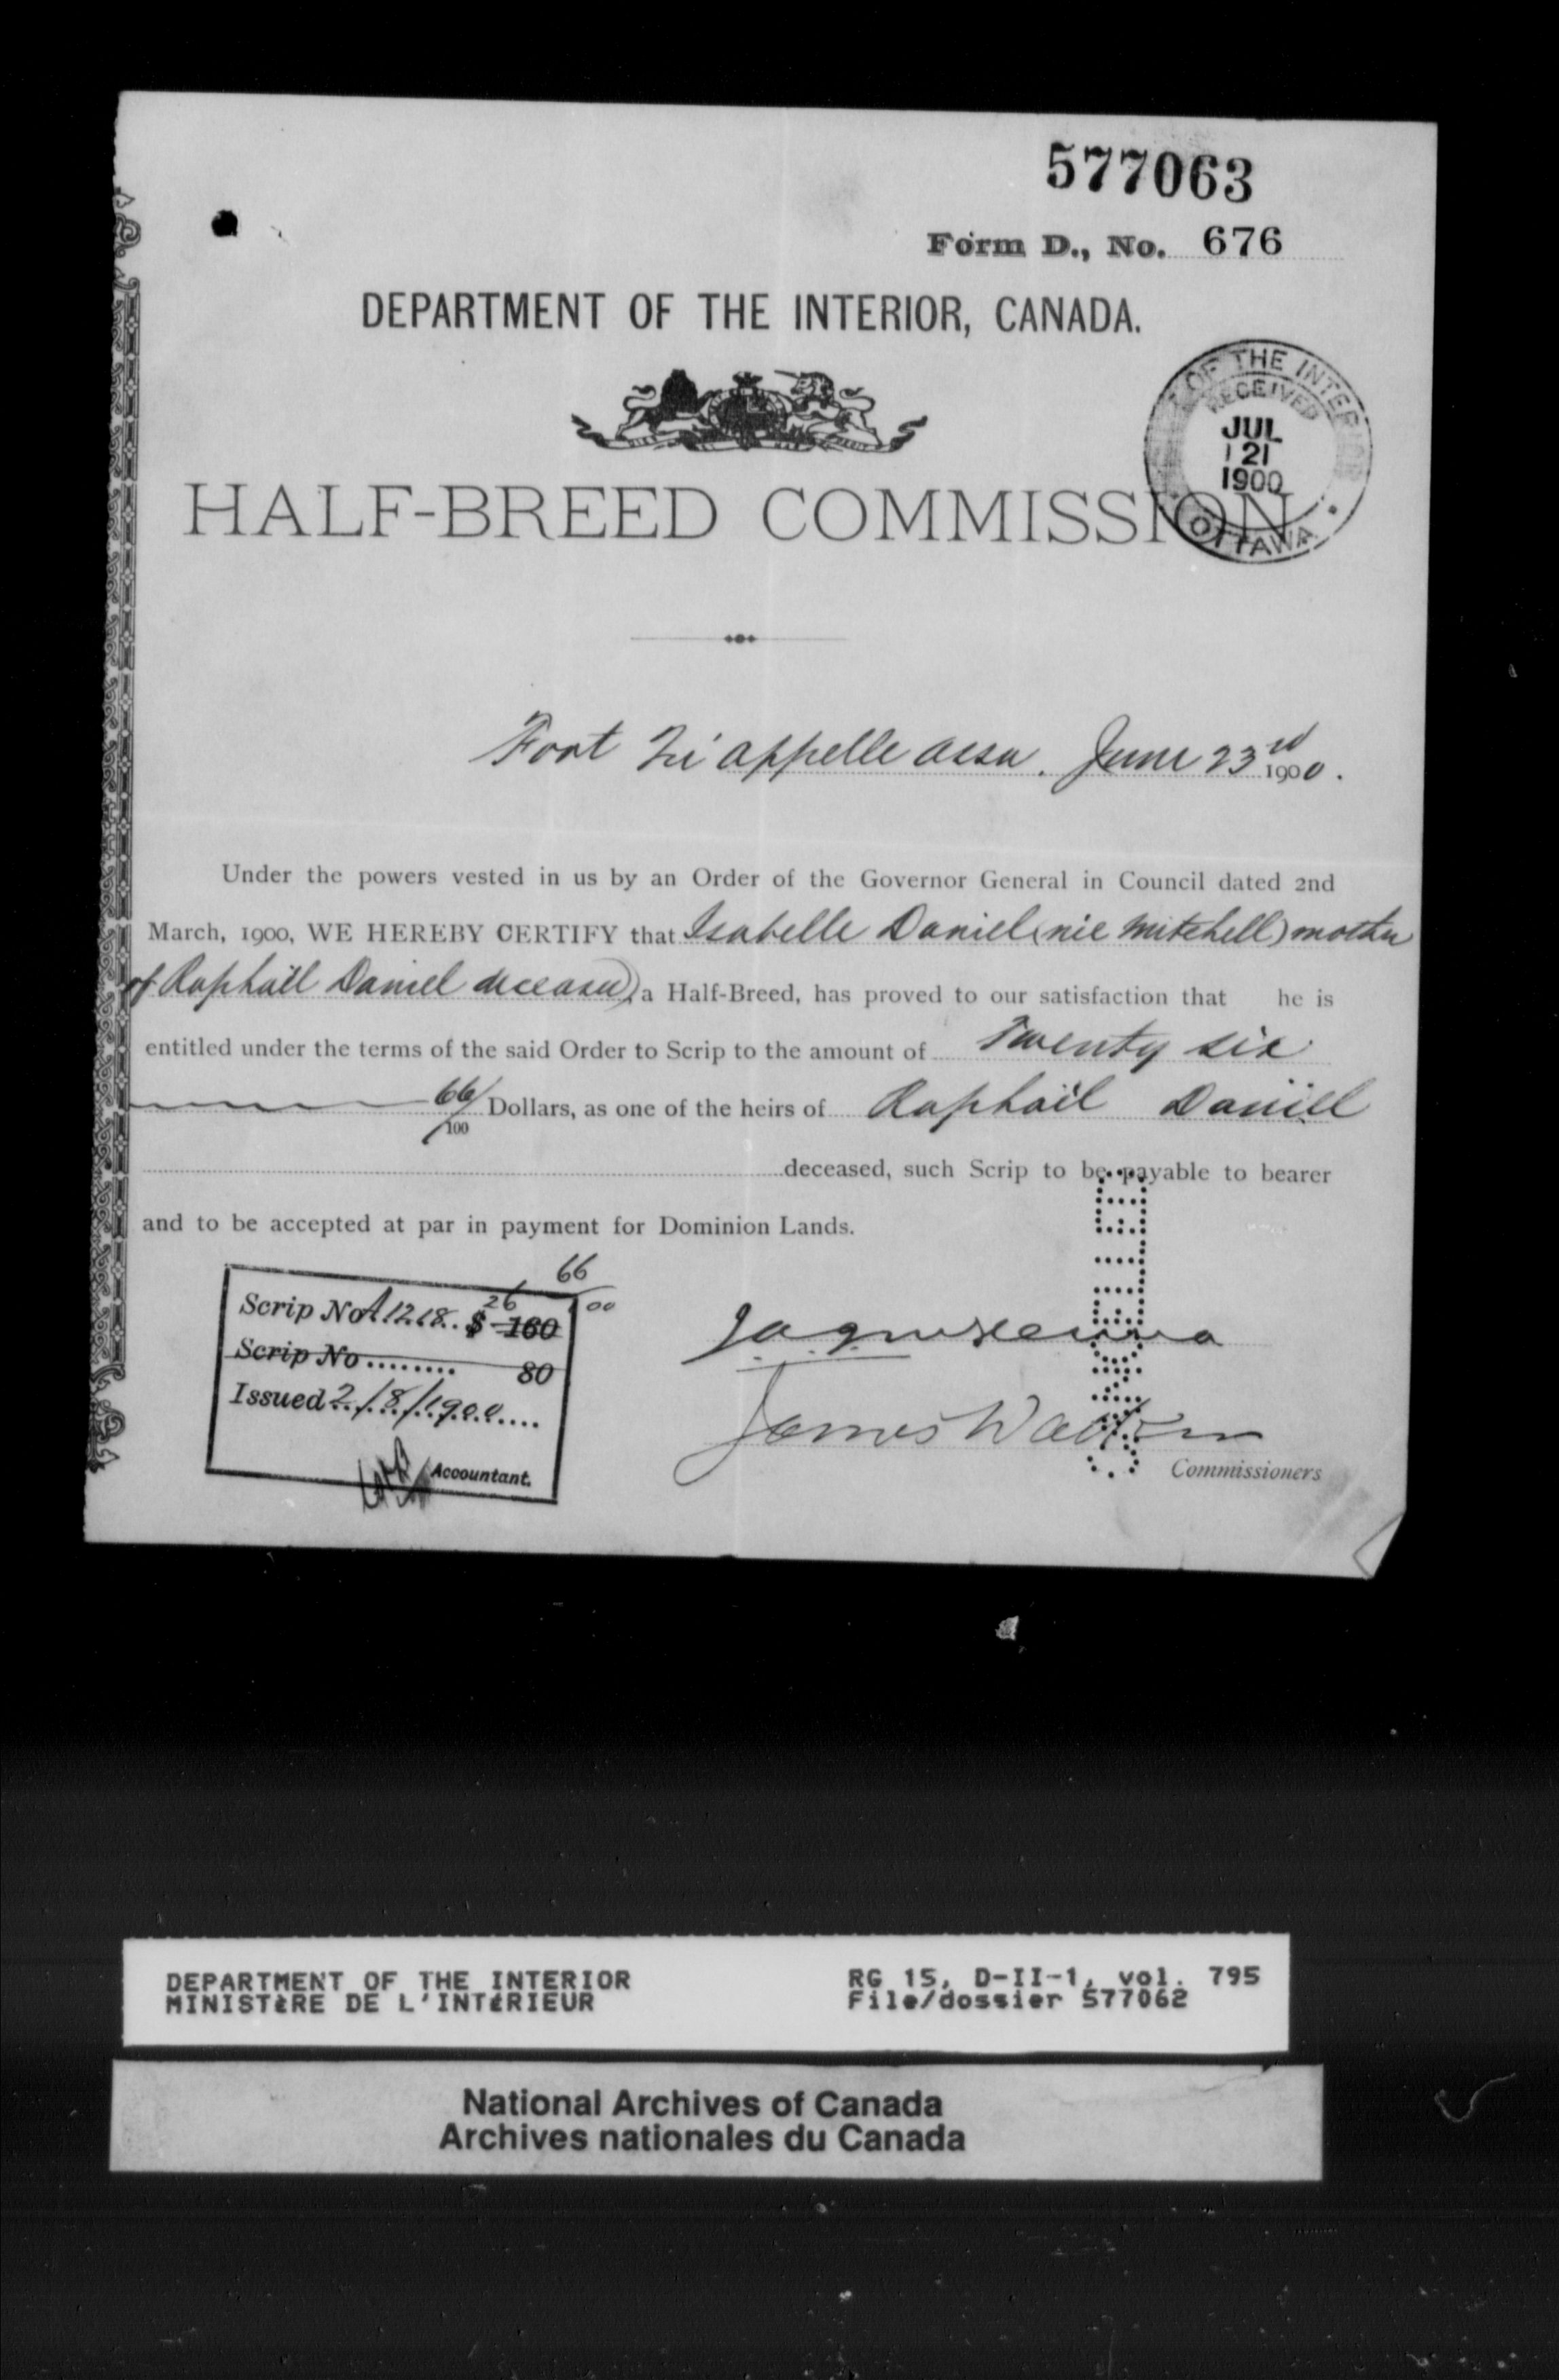 577063
Form D., No. 676
DEPARTMENT OF THE INTERIOR, CANADA.
OF THE INTER
RECEIVED
JUL
21
1900
OTTAWA
HALF-BREED COMMISSION
Fort Qu'appelle Assa. June 23rd 1900.
Under the powers vested in us by an Order of the Governor General in Council dated 2nd
March, 1900, WE HEREBY CERTIFY that Isabelle Daniel (nie Mitchell) mother
of Raphaël Daniel deceased, a Half-Breed, has proved to our satisfaction that he is
entitled under the terms of the said Order to Scrip to the amount of Twenty six
66/100 Dollars, as one of the heirs of Raphaël Daniel
deceased, such Scrip to be payable to bearer
and to be accepted at par in payment for Dominion Lands.
Scrip No A1218 $ 160 26 66/100
Scrip No ........ 80
Issued 2/8/1900
Accountant.
James Walker
Commissioners
CANCELLED
DEPARTMENT OF THE INTERIOR RG 15, D-II-1, vol. 795
MINISTÈRE DE L'INTÉRIEUR File/dossier 577062
National Archives of Canada
Archives nationales du Canada